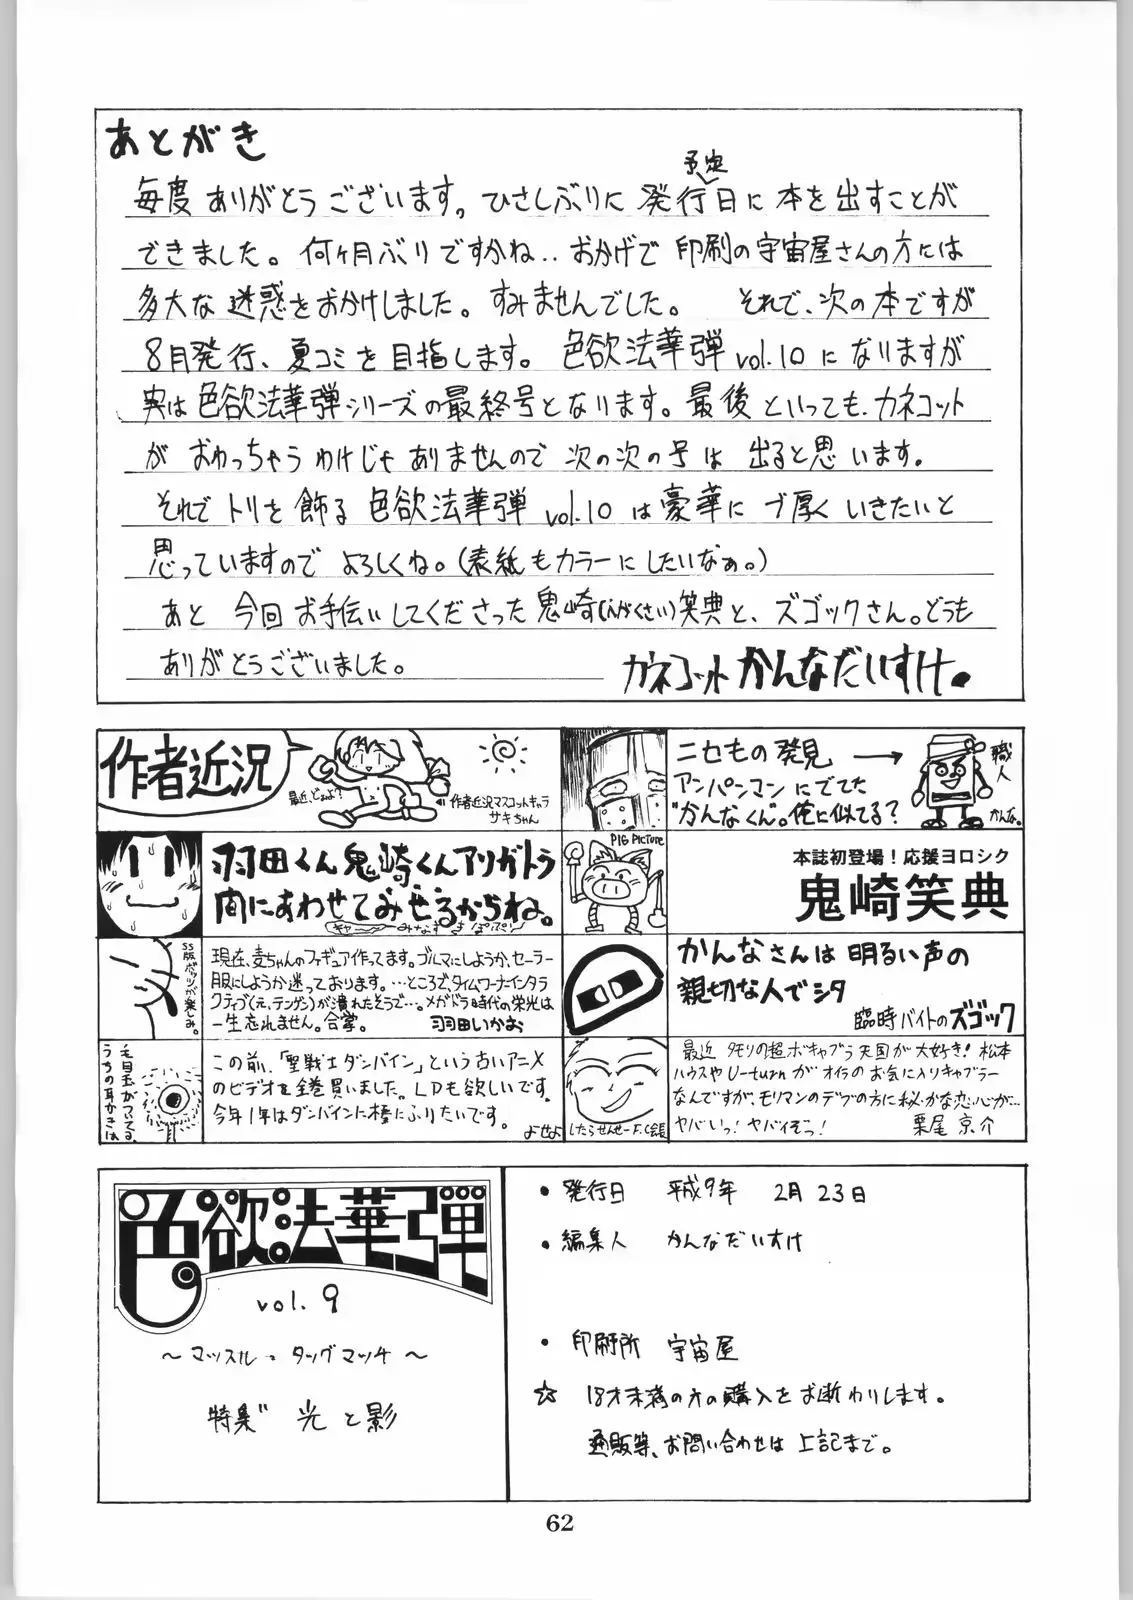 あとがき
予定
毎度ありがとうございます。ひさしぶりに発行日に本を出すことが
できました。何ヶ月ぶりですかね‥おかげで印刷の宇宙屋さんの方には
多大な迷惑をおかけしました。すみませんでした。 それで、次の本ですが
8月発行、夏コミを目指します。色欲法華弾vol.10になりますが
実は色欲法華弾シリーズの最終号となります。最後といっても、カネコット
がおわっちゃうわけじゃありませんので次の次の号は出ると思います。
それでトリを飾る色欲法華弾vol.10は豪華にブ厚くいきたいと
思っていますのでよろしくね。(表紙もカラーにしたいなぁ。)
あと今回お手伝いしてくださった鬼崎(えがくさい)笑典と、ズゴックさん。どうも
ありがとうございました。
カネコット かんなだいすけ。
作者近況
最近、どぉよ?
作者近況マスコットキャラ
サキちゃん
ニセもの発見
アンパンマンにでてた
"かんなくん"。俺に似てる?
職人
かんな。
羽田くん鬼崎くんアリガトう
間にあわせてみせるからね。
PIG PICTURE
本誌初登場!応援ヨロシク
鬼崎笑典
SS版ポリッツが楽しみ。
現在、麦ちゃんのフィギュア作ってます。ブルマにしようか、セーラー
服にしようか迷っております。…ところで、タイムワーナーインタラ
クティブ(え、テンゲン)が潰れたそうで…。メガドラ時代の栄光は
一生忘れません。合掌。 羽田いかお
かんなさんは明るい声の
親切な人でシタ
臨時バイトのズゴック
毛目玉がついてる、
うちの耳かきは
この前、「聖戦士ダンバイン」という古いアニメ
のビデオを全巻買いました。LDも欲しいです。
今年1年はダンバインに棒にふりたいです。
よせよ
したらせんせーF.C会長
最近タモリの超ボキャブラ天国が大好き!松本
ハウスやU-turnがオイラのお気に入りキャブラー
なんですが、モリマンのデブの方に秘かな恋心が…
ヤバいっ!ヤバイぞっ!
栗尾京介
色欲法華弾
vol.9
〜マッスル・タッグマッチ〜
特集 光と影
・発行日 平成9年 2月23日
・編集人 かんなだいすけ
・印刷所 宇宙屋
☆ 18才未満の方の購入をお断わりします。
通販等、お問い合わせは上記まで。
62